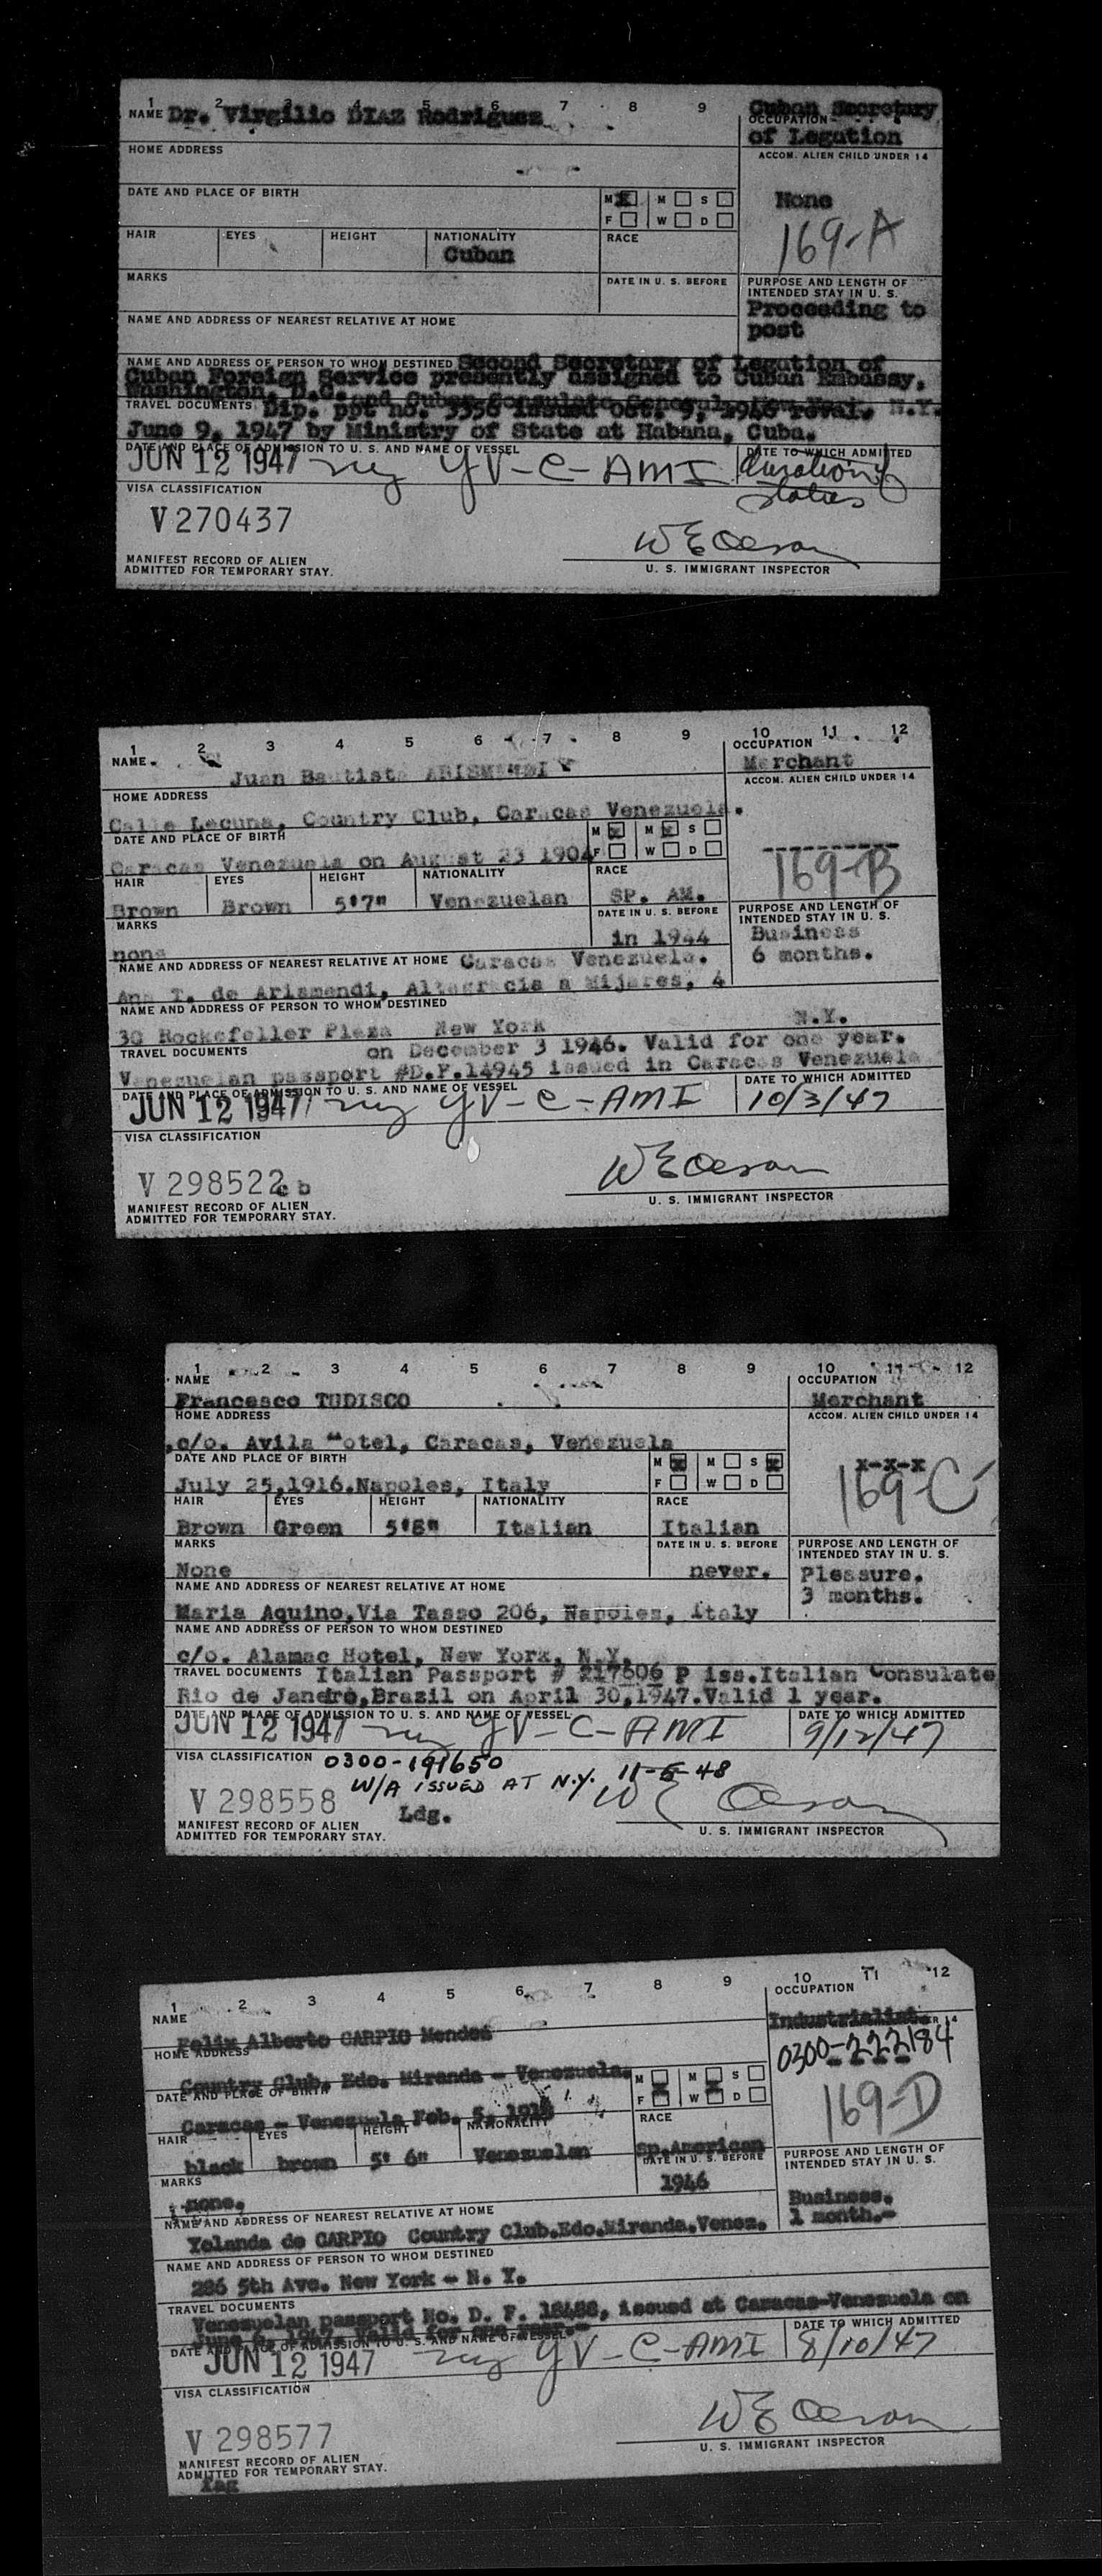 1 2 3 4 5 6 7 8 9
NAME Dr. Virgilio DIAZ Rodriguez
Cuban Secretary
OCCUPATION
of Legation
HOME ADDRESS
ACCOM. ALIEN CHILD UNDER 14
DATE AND PLACE OF BIRTH
M X F M W S D
None
169-A
HAIR EYES HEIGHT NATIONALITY RACE
Cuban
MARKS DATE IN U. S. BEFORE
PURPOSE AND LENGTH OF
INTENDED STAY IN U. S.
Proceeding to
post
NAME AND ADDRESS OF NEAREST RELATIVE AT HOME
NAME AND ADDRESS OF PERSON TO WHOM DESTINED Second Secretary of Legation of
Cuban Foreign Service presently assigned to Cuban Embassy,
Washington, D.C. and Cuban Consulate General, New York, N.Y.
TRAVEL DOCUMENTS Dip. ppt no. 3356 issued Oct. 9, 1946 reval.
June 9, 1947 by Ministry of State at Habana, Cuba.
DATE AND PLACE OF ADMISSION TO U. S. AND NAME OF VESSEL DATE TO WHICH ADMITTED
JUN 12 1947 ny YV-C-AMI duration of
status
VISA CLASSIFICATION
V 270437
W E Olson
MANIFEST RECORD OF ALIEN
ADMITTED FOR TEMPORARY STAY.
U. S. IMMIGRANT INSPECTOR
1 2 3 4 5 6 7 8 9 10 11 12
NAME OCCUPATION
Juan Bautista ARISMENDI Merchant
HOME ADDRESS ACCOM. ALIEN CHILD UNDER 14
Calle Lecuna, Country Club, Caracas Venezuela.
DATE AND PLACE OF BIRTH M X F M X W S D
---------
Caracas Venezuela on August 23 1904
169-B
HAIR EYES HEIGHT NATIONALITY RACE
Brown Brown 5'7" Venezuelan SP. AM.
MARKS DATE IN U. S. BEFORE
PURPOSE AND LENGTH OF
INTENDED STAY IN U. S.
none in 1944 Business
6 months.
NAME AND ADDRESS OF NEAREST RELATIVE AT HOME Caracas Venezuela.
Ana T. de Arismendi, Altagracia a Mijares, 4
NAME AND ADDRESS OF PERSON TO WHOM DESTINED
30 Rockefeller Plaza New York N.Y.
TRAVEL DOCUMENTS on December 3 1946. Valid for one year.
Venezuelan passport #D.F.14945 issued in Caracas Venezuela
DATE AND PLACE OF ADMISSION TO U. S. AND NAME OF VESSEL DATE TO WHICH ADMITTED
JUN 12 1947 ny YV-C-AMI 10/3/47
VISA CLASSIFICATION
V 298522 cb
W E Olson
MANIFEST RECORD OF ALIEN
ADMITTED FOR TEMPORARY STAY.
U. S. IMMIGRANT INSPECTOR
1 2 3 4 5 6 7 8 9 10 11 12
NAME OCCUPATION
Francesco TUDISCO Merchant
HOME ADDRESS ACCOM. ALIEN CHILD UNDER 14
c/o. Avila Hotel, Caracas, Venezuela
DATE AND PLACE OF BIRTH M X F M W S X D
x-x-x
169-C
July 25,1916.Napoles, Italy
HAIR EYES HEIGHT NATIONALITY RACE
Brown Green 5'8" Italian Italian
MARKS DATE IN U. S. BEFORE
PURPOSE AND LENGTH OF
INTENDED STAY IN U. S.
None never. Pleasure.
3 months.
NAME AND ADDRESS OF NEAREST RELATIVE AT HOME
Maria Aquino,Via Tasso 206, Napoles, Italy
NAME AND ADDRESS OF PERSON TO WHOM DESTINED
c/o. Alamac Hotel, New York, N.Y.
TRAVEL DOCUMENTS Italian Passport # 217606 P iss.Italian Consulate
Rio de Janeiro,Brazil on April 30,1947.Valid 1 year.
DATE AND PLACE OF ADMISSION TO U. S. AND NAME OF VESSEL DATE TO WHICH ADMITTED
JUN 12 1947 ny YV-C-AMI 9/12/47
VISA CLASSIFICATION 0300-191650
W/A ISSUED AT N.Y. 11-5-48
V 298558 Ldg.
W E Olson
MANIFEST RECORD OF ALIEN
ADMITTED FOR TEMPORARY STAY.
U. S. IMMIGRANT INSPECTOR
1 2 3 4 5 6 7 8 9 10 11 12
NAME OCCUPATION
Felix Alberto CARPIO Mendez Industrialist.
HOME ADDRESS
0300-222184
Country Club. Edo. Miranda - Venezuela.
DATE AND PLACE OF BIRTH M F M W S D
169-D
Caracas - Venezuela Feb. 5,
HAIR EYES HEIGHT NATIONALITY RACE
black brown 5' 6" Venezuelan Sp.American
MARKS DATE IN U. S. BEFORE
PURPOSE AND LENGTH OF
INTENDED STAY IN U. S.
none. 1946 Business.
1 month.-
NAME AND ADDRESS OF NEAREST RELATIVE AT HOME
Yolanda de CARPIO Country Club.Edo.Miranda.Venez.
NAME AND ADDRESS OF PERSON TO WHOM DESTINED
286 5th Ave. New York - N. Y.
TRAVEL DOCUMENTS
Venezuelan passport No. D. F. 18488, issued at Caracas-Venezuela on
1947. Valid for one year.-
DATE AND PLACE OF ADMISSION TO U. S. AND NAME OF VESSEL DATE TO WHICH ADMITTED
JUN 12 1947 ny YV-C-AMI 8/10/47
VISA CLASSIFICATION
V 298577
W E Olson
MANIFEST RECORD OF ALIEN
ADMITTED FOR TEMPORARY STAY.
U. S. IMMIGRANT INSPECTOR